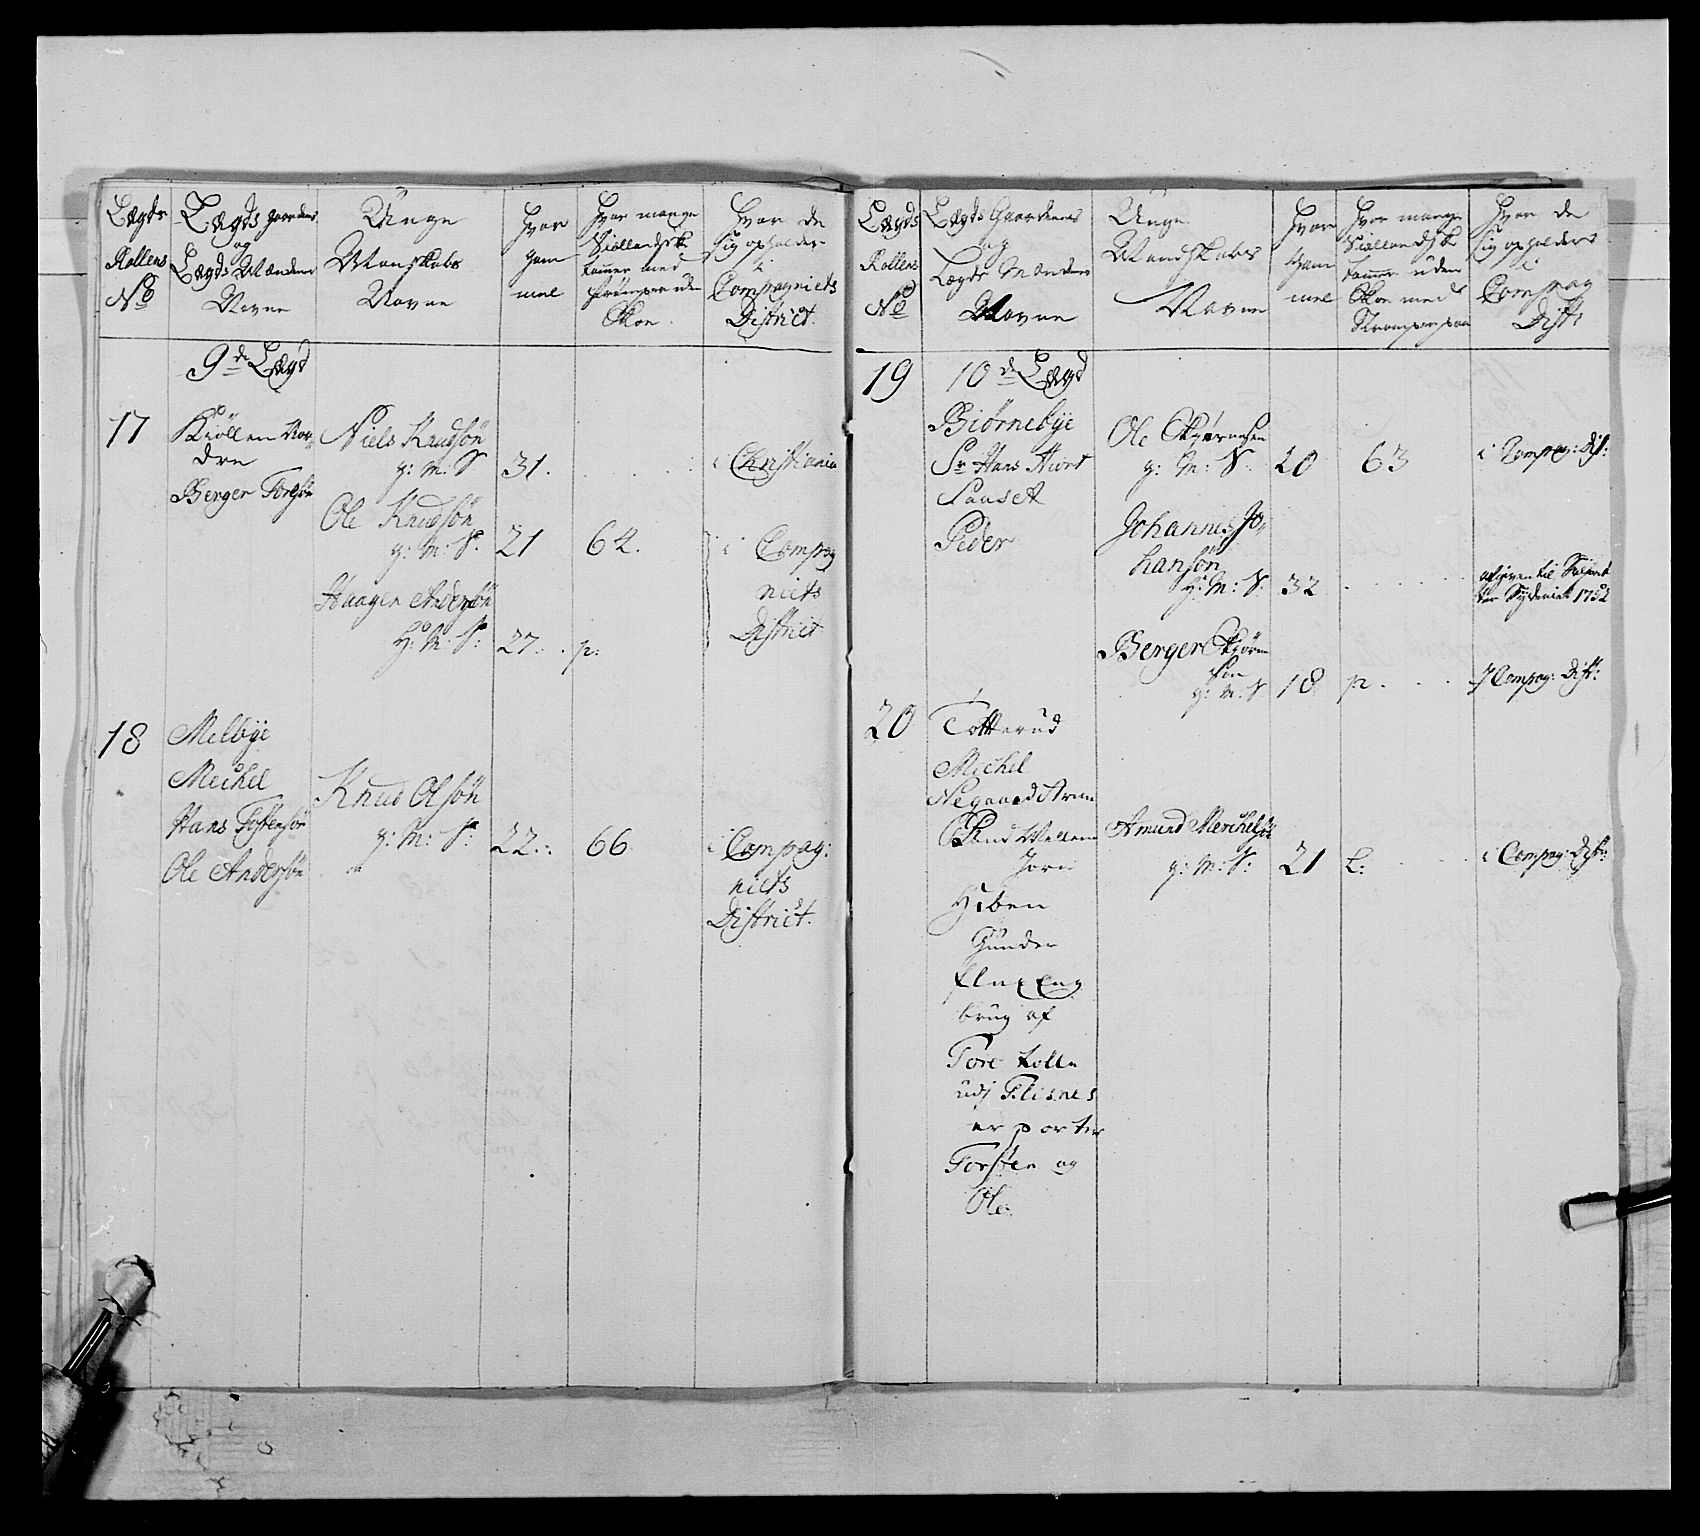 Lægds
Rollens
No
Lægds gaardens
og
Lægds Mændenes
Navne
Unge
Manskabs
Navne
Hvor
gam
mel
Hvor mange
Siellandske
tommer med
strømper uden
Skoe.
Hvor de
sig opholder
i
Compagniets
District.
9de Lægd
17
Kiöllen Nor-
dre
Berger Toresön
Niels Knudsön
g: M: S.
31.
i Christiania
Ole Knudsön
g: M: S.
21
64.
i Compag
niets
District
Haagen Andersön
H: M: S:
27.
p:
18
Melbÿe
Mechel
Hans Tostensön
Ole Andersön
Knud Olsön
g: M: S:
22.
66
i Compag:
niets
District.
Lægds
Rollens
No
Lægds Gaardenes
og
Lægds Mændenes
Navne
Unge
Mandskabs
Navne
Hvor
gam
mel
Hvor mange
Siellandske
tommer uden
Skoe med
Strømper paa
Hvor de
sig opholder
i
Compag
Distr
19
10de Lægd
Biørnebÿe
Sr Hans Hiort
Sauset
Peder
Ole
g: M: S.
20
63
i Compag: Dist:
Johannes Jo-
hansön
H: M: S.
32
1752
Berger
g: M: S
18
p.
i Compag: Dist:
20
Totterud
Michel
Negaard
Strand
Hiben
Gunder
Eng
brug af
Tore
Flisnes
Torsten og
Ole.
Amund
g: M: S:
21
L:
i Compag: Distr: